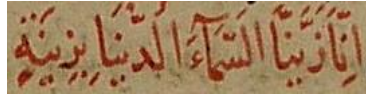 اِنَّا زَيَّنَّا السَّمَآءَ الدُّنْيَا بِزِينَةٍ